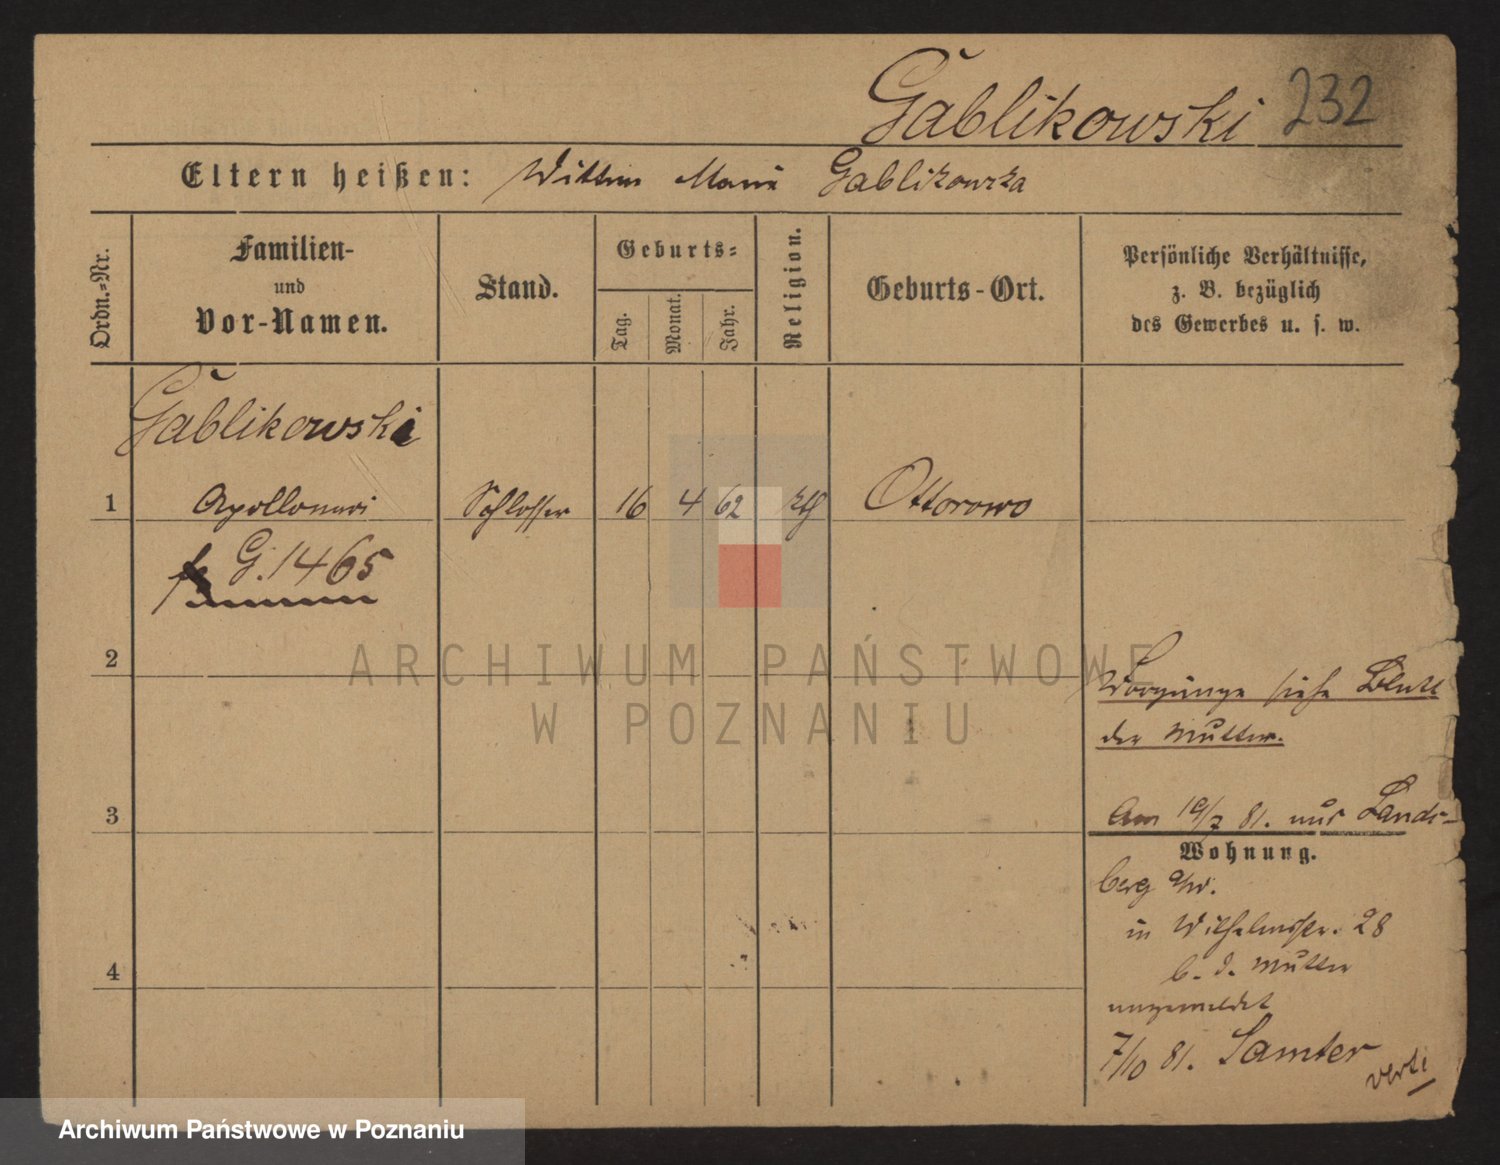 Gablikowski 232
Eltern heißen: Wittwe Marie Gablikowska
Ordn.-Nr.
Familien-
und
Vor-Namen.
Stand.
Geburts-
Tag.
Monat.
Jahr.
Religion.
Geburts-Ort.
Persönliche Verhältnisse,
z. B. bezüglich
des Gewerbes u. s. w.
Gablikowski
1 Apollonari Schlosser 16 4 62 kth Ottorowo
G. 1465
2
Vorgänge siehe Blatt
der Mutter.
3
Am 19/7 81. aus Lands-
Wohnung.
berg a/W.
in Wilhelmstr. 28
b. d. Mutter
angemeldet
4
7/10 81. Samter
verte
ARCHIWUM PAŃSTWOWE
W POZNANIU
Archiwum Państwowe w Poznaniu